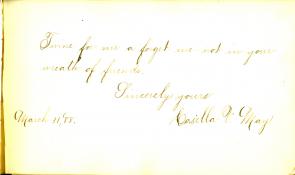 Twine for me a forget me not in your
wreath of friends.
Sincerely yours
March 11, '88. Rosella May